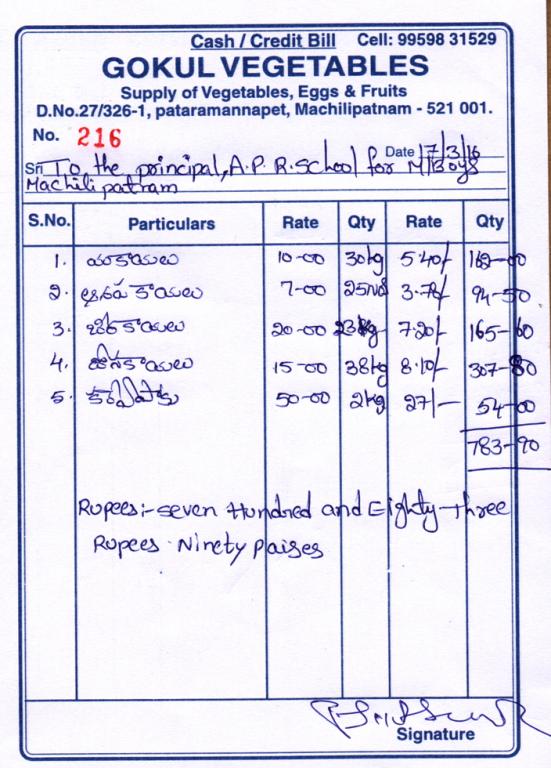 Cash / Credit Bill Cell: 99598 31529
GOKUL VEGETABLES
Supply of Vegetables, Eggs & Fruits
D.No.27/326-1, pataramannapet, Machilipatnam - 521 001.
No. 216
Date 17/3/16
Sri To the principal, A.P.R. School for M/Boys
Machilipatnam
S.No. Particulars Rate Qty Rate Qty
1. 10-00 30kg 5.40/- 162-00
2. 7-00 25 3.78/- 94-50
3. బీరకాయలు 20-00 23kg 7.20/- 165-60
4. 15-00 38kg 8.10/- 307-80
5. కరివేపాకు 50-00 2kg 27/- 54-00
783-90
Rupees:- Seven Hundred and Eighty-three
Rupees. Ninety paises
Signature